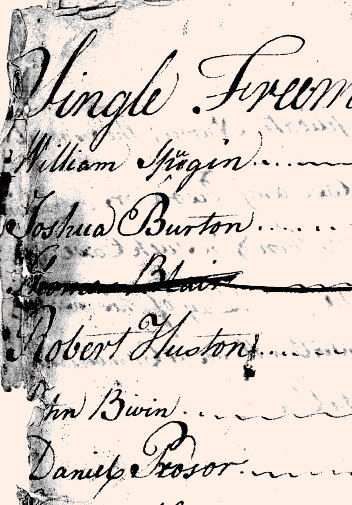 Single Freem
William Spurgin
Joshua Burton
Thomas Blair
Robert Huston
John Bivin
Daniel Prosor